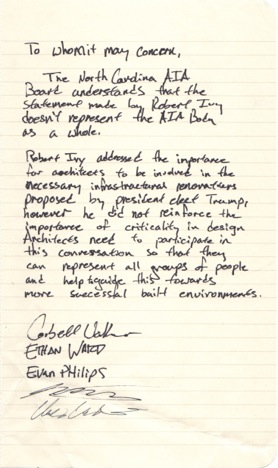 To whomit may concern,
The North Carolina AIA
Board understands that the
statement made by Robert Ivy
doesn't represent the AIA Body
as a whole.
Robert Ivy addressed the importance
for architects to be involved in the
necessary infrastructural renovations
proposed by president elect Trump,
however he did not reinforce the
importance of criticality in design
Architects need to participate in
this conversation so that they
can represent all groups of people
and help guide this towards
more successful built environments.
ETHAN WARD
Evan Philips